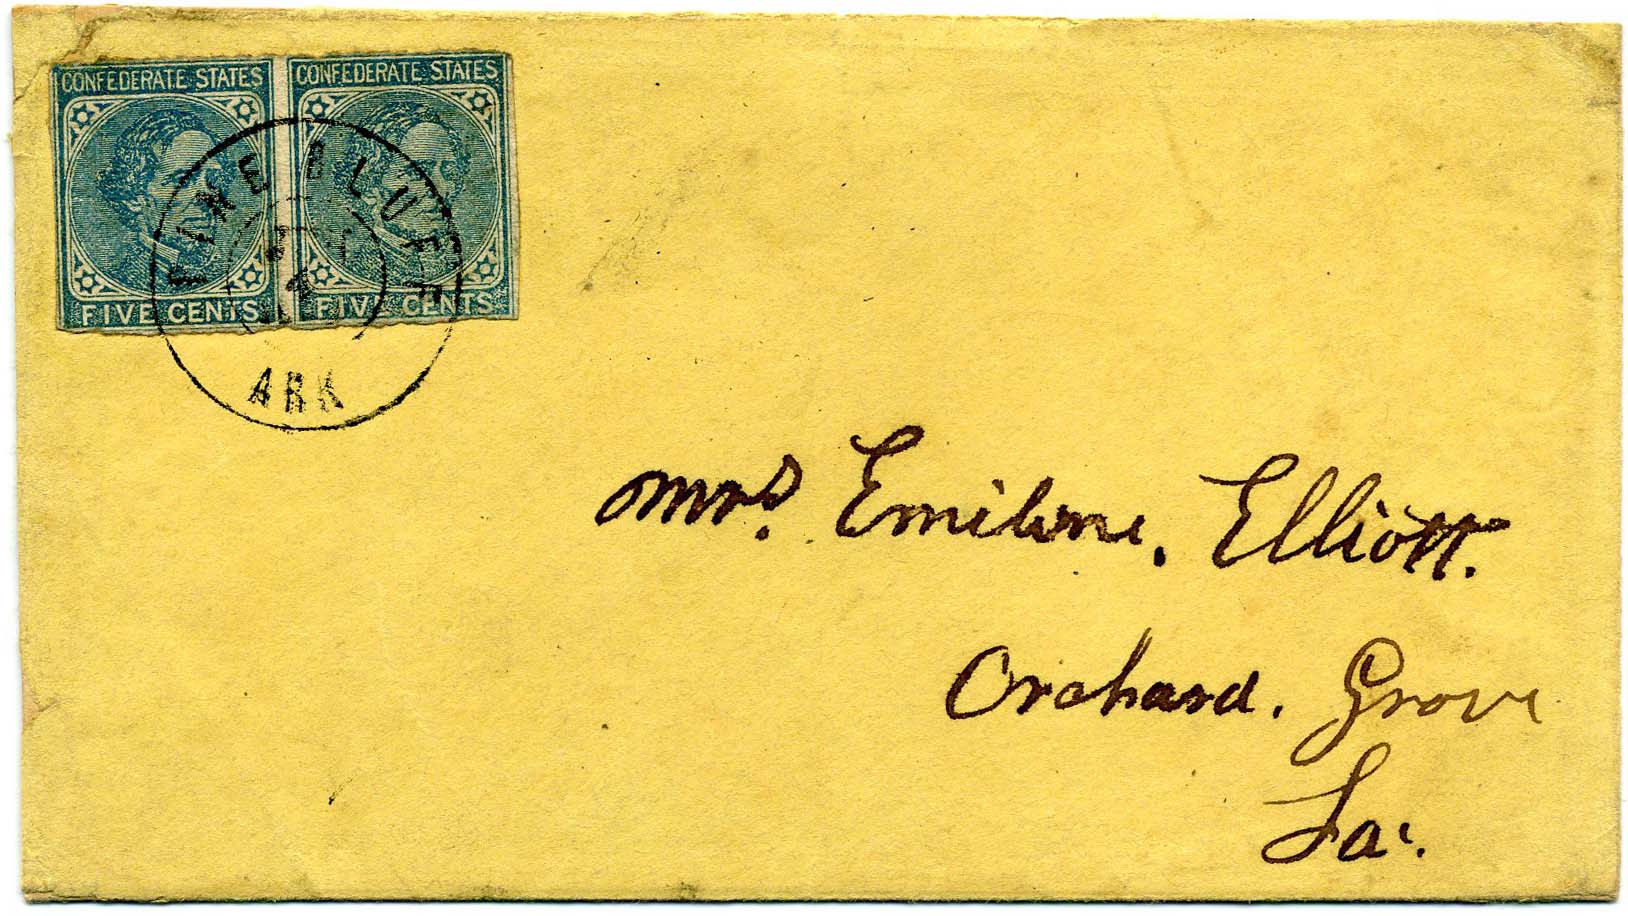 CONFEDERATE STATES CONFEDERATE STATES
FIVE CENTS FIVE CENTS
PINE BLUFF
ARK
Mrs. Emiline. Elliott.
Orchard. Grove
La.